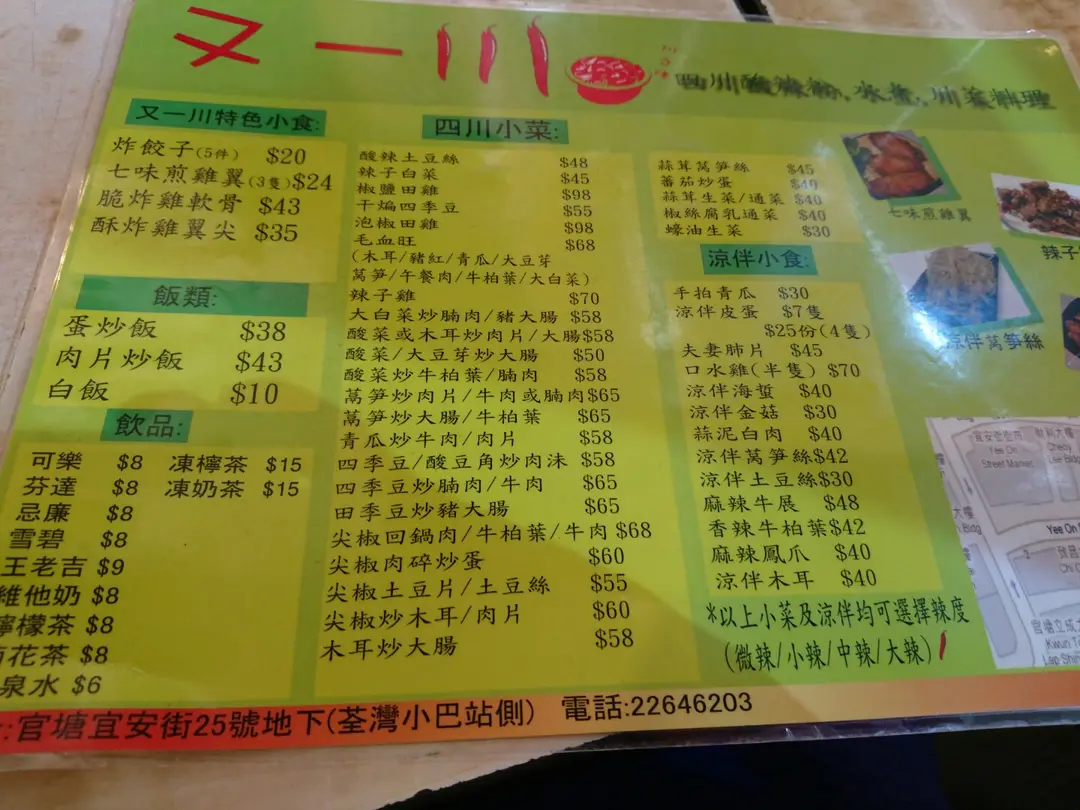 又一川
四川酸辣粉,水煮,川菜料理
又一川特色小食:
炸餃子(5件) $20
七味煎雞翼(3隻)$24
脆炸雞軟骨 $43
酥炸雞翼尖 $35
飯類:
蛋炒飯 $38
肉片炒飯 $43
白飯 $10
飲品:
可樂 $8 凍檸茶 $15
芬達 $8 凍奶茶 $15
忌廉 $8
雪碧 $8
王老吉 $9
維他奶 $8
檸檬茶 $8
花茶 $8
泉水 $6
四川小菜:
酸辣土豆絲 $48
辣子白菜 $45
椒鹽田雞 $98
干煸四季豆 $55
泡椒田雞 $98
毛血旺 $68
(木耳/豬紅/青瓜/大豆芽
萵笋/午餐肉/牛柏葉/大白菜)
辣子雞 $70
大白菜炒腩肉/豬大腸 $58
酸菜或木耳炒肉片/大腸$58
酸菜/大豆芽炒大腸 $50
酸菜炒牛柏葉/腩肉 $58
萵笋炒肉片/牛肉或腩肉$65
萵笋炒大腸/牛柏葉 $65
青瓜炒牛肉/肉片 $58
四季豆/酸豆角炒肉沬 $58
四季豆炒腩肉/牛肉 $65
田季豆炒豬大腸 $65
尖椒回鍋肉/牛柏葉/牛肉 $68
尖椒肉碎炒蛋 $60
尖椒土豆片/土豆絲 $55
尖椒炒木耳/肉片 $60
木耳炒大腸 $58
蒜茸萵笋絲 $45
蕃茄炒蛋 $40
蒜茸生菜/通菜 $40
椒絲腐乳通菜 $40
蠔油生菜 $30
涼伴小食:
手拍青瓜 $30
涼伴皮蛋 $7隻
$25份(4隻)
夫妻肺片 $45
口水雞(半隻) $70
涼伴海蜇 $40
涼伴金菇 $30
蒜泥白肉 $40
涼伴萵笋絲$42
涼伴土豆絲$30
麻辣牛展 $48
香辣牛柏葉$42
麻辣鳳爪 $40
涼伴木耳 $40
*以上小菜及涼伴均可選擇辣度
(微辣/小辣/中辣/大辣)
七味煎雞翼
辣子
涼伴萵笋絲
Yee On
Street Market
Yee On
Kwun T
:官塘宜安街25號地下(荃灣小巴站側) 電話:22646203